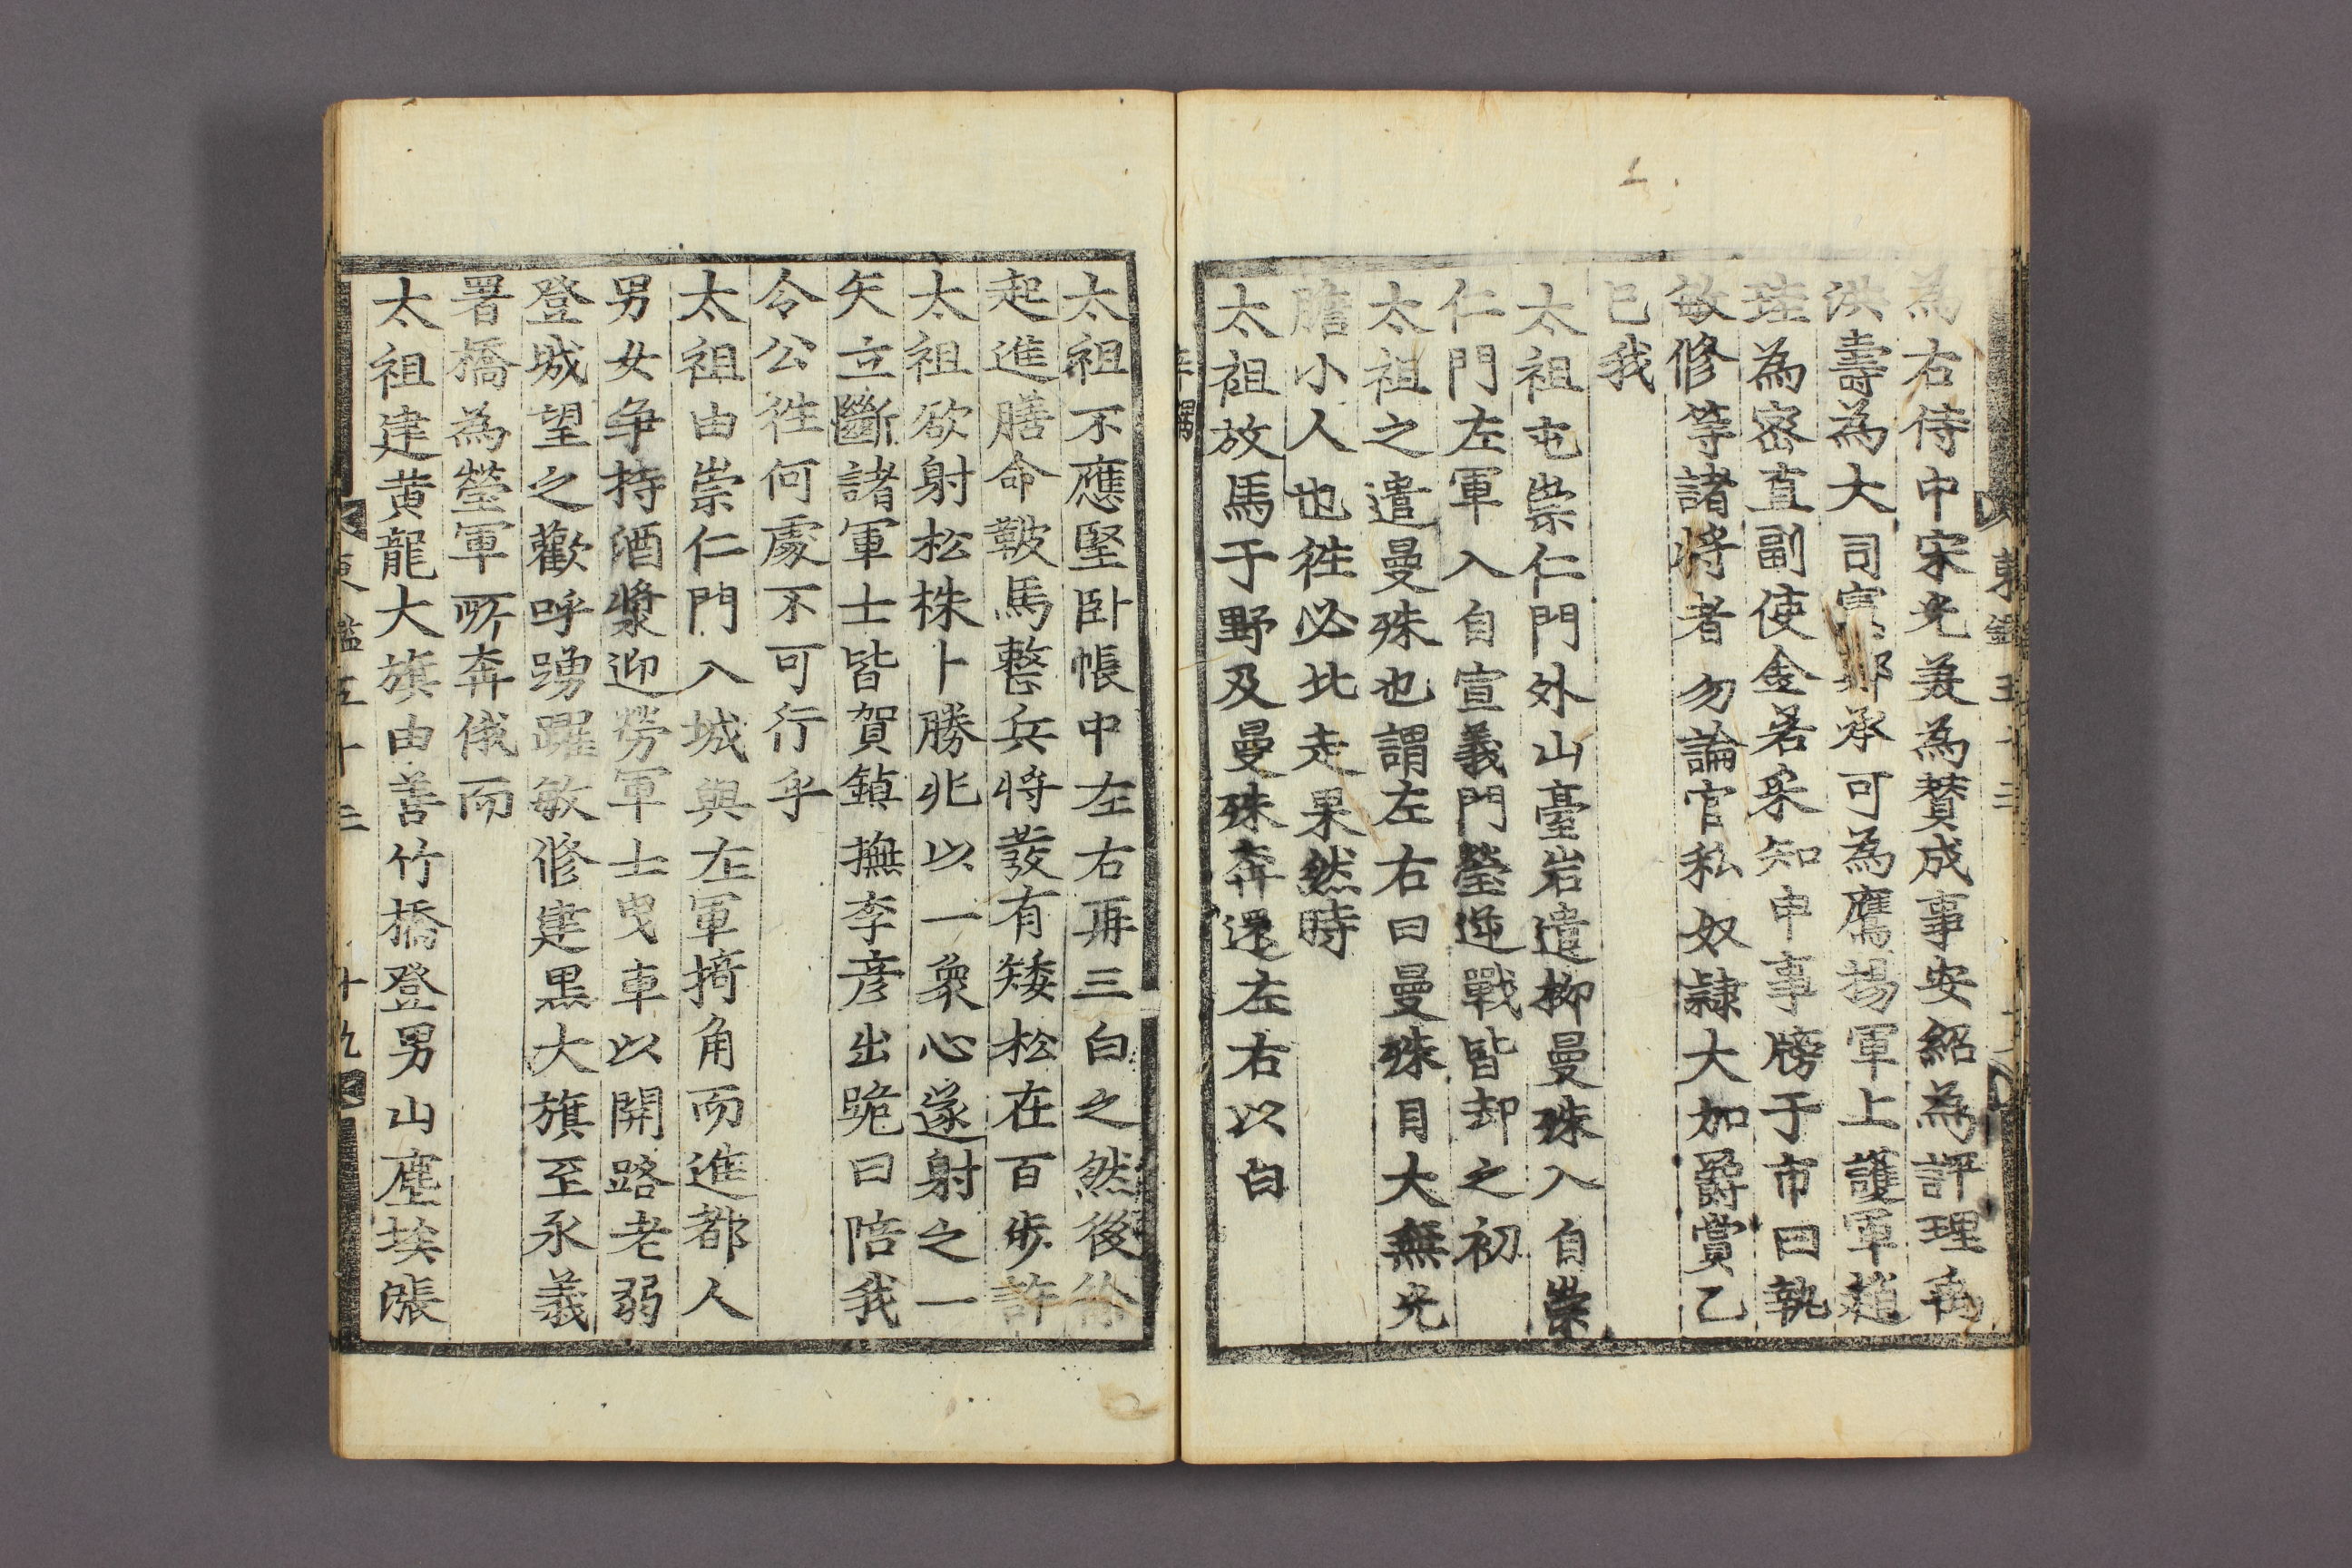 為右侍中宋光美為贊成事安紹為評理禹
洪壽為大司憲鄭承可為鷹揚軍上護軍趙
珪為密直副使金若采知申事牓于市曰執
敏修等諸將者勿論官私奴隷大加爵賞乙
巳我
太祖屯崇仁門外山臺岩遣柳曼殊入自崇
仁門左軍入自宣義門瑩逆戰皆却之初
太祖之遣曼殊也謂左右曰曼殊目大無光
膽小人也徃必北走果然時
太祖放馬于野及曼殊奔還左右以白
辛禑
太祖不應堅臥帳中左右再三白之然後徐
起進膳命鞁馬整兵將發有矮松在百步許
太祖欲射松株卜勝兆以一衆心遂射之一
矢立斷諸軍士皆賀鎮撫李彦出跪曰陪我
令公徃何處不可行乎
太祖由崇仁門入城與左軍掎角而進都人
男女争持酒漿迎勞軍士曳車以開路老弱
登城望之歡呼踴躍敏修建黒大旗至永義
署橋為瑩軍所奔俄而
太祖建黃龍大旗由善竹橋登男山塵埃漲
東鑑五十三 十九